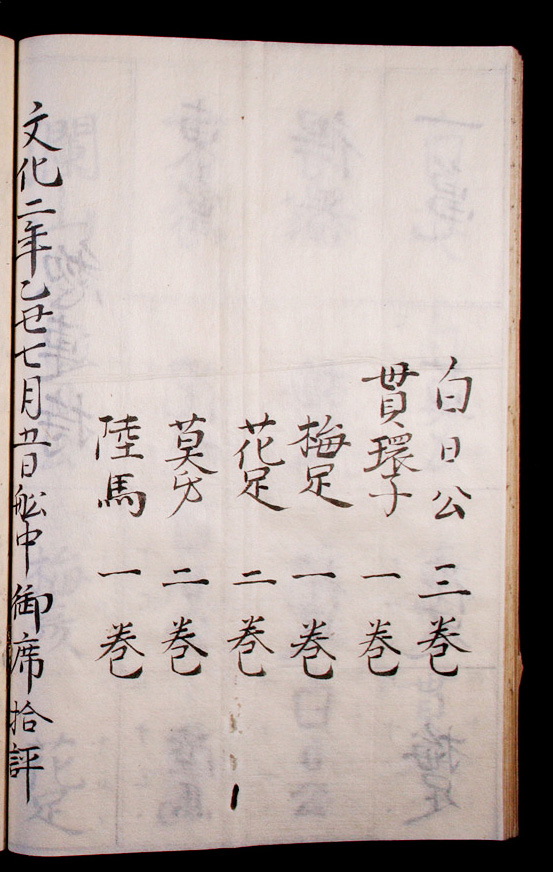 白日公 三巻
貫環子 一巻
梅足 一巻
花足 二巻
莫房 二巻
陸馬 一巻
文化二年乙丑七月五日舩中御席拾評